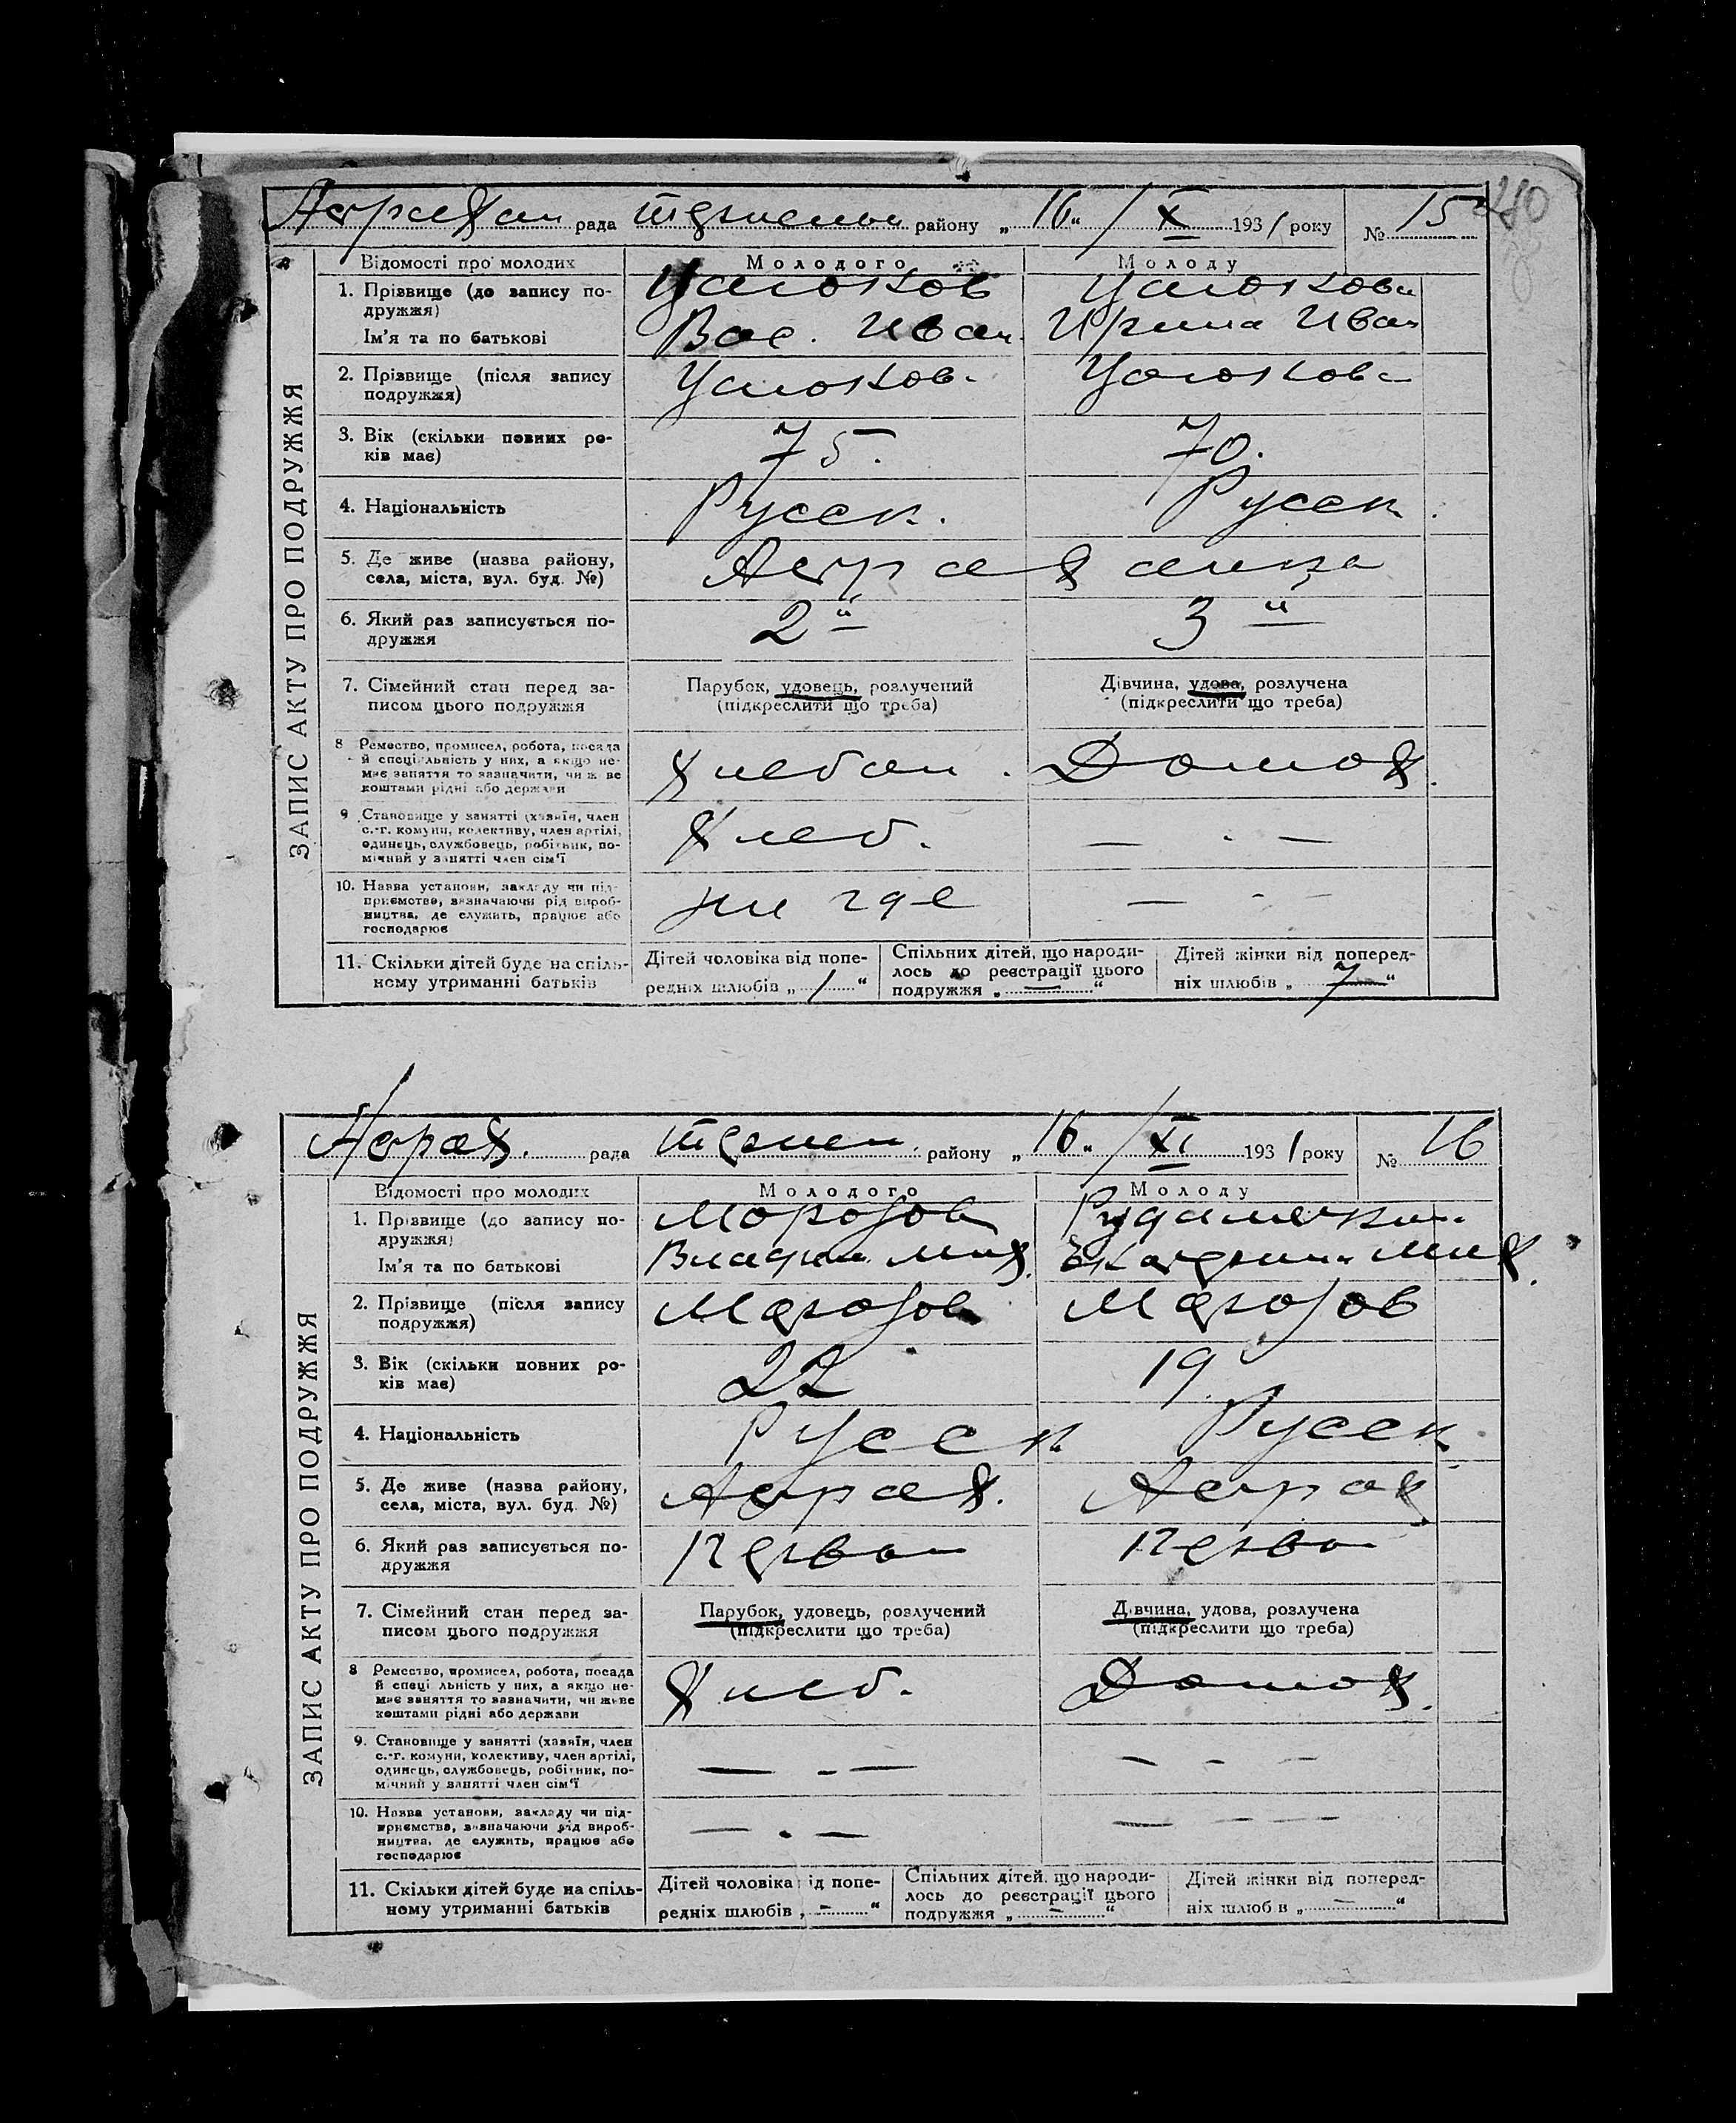 рада району „16“ / X 1931 року № 15
ЗАПИС АКТУ ПРО ПОДРУЖЖЯ
Відомості про молодих Молодого Молоду
1. Прізвище (до запису по-
дружжя)
Ім'я та по батькові Вас. Иван. Ирина Иван
2. Прізвище (після запису
подружжя)
3. Вік (скільки повних ро- 75. 70.
ків має)
4. Національність Русск. Русск.
5. Де живе (назва району,
села, міста, вул. буд. №)
6. Який раз записується по- 2й 3й
дружжя
7. Сімейний стан перед за- Парубок, удовець, розлучений Дівчина, удова, розлучена
писом цього подружжя (підкреслити що треба) (підкреслити що треба)
8 Ремество, промисел, робота, посада
й спеціяльність у них, а якщо не- Хлебоп. Домох.
має заняття то зазначити, чи живе
коштами рідні або держави
9 Становище у занятті (хазяїн, член
с.-г. комуни, колективу, член артілі, Хлеб. — · —
одинець, службовець, робітник, по-
мічний у занятті член сім'ї
10. Назва установи, закладу чи під-
приємства, зазначаючи рід вироб- ни где — - -
ництва, де служить, працює або
господарює
11. Скільки дітей буде на спіль- Дітей чоловіка від попе- Спільних дітей, що народи- Дітей жінки від поперед-
ному утриманні батьків редніх шлюбів „1“ лось до реєстрації цього ніх шлюбів „7“
подружжя „—“
рада району „16“ / XI 1931 року № 16
ЗАПИС АКТУ ПРО ПОДРУЖЖЯ
Відомості про молодих Молодого Молоду
1. Прізвище (до запису по- Морозов
дружжя)
Ім'я та по батькові Владим. Мих. Екатерин. Мих.
2. Прізвище (після запису Морозов Морозов
подружжя)
3. Вік (скільки повних ро- 22 19
ків має)
4. Національність Русск Русск
5. Де живе (назва району,
села, міста, вул. буд. №)
6. Який раз записується по- Первы Первы
дружжя
7. Сімейний стан перед за- Парубок, удовець, розлучений Дівчина, удова, розлучена
писом цього подружжя (підкреслити що треба) (підкреслити що треба)
8 Ремество, промисел, робота, посада
й спеціяльність у них, а якщо не- Хлеб. Домох.
має заняття то зазначити, чи живе
коштами рідні або держави
9. Становище у занятті (хазяїн, член
с.-г. комуни, колективу, член артілі, — - — - - -
одинець, службовець, робітник, по-
мічний у занятті член сім'ї
10. Назва установи, закладу чи під-
приємства, зазначаючи рід вироб- — · — — - —
ництва, де служить, працює або
господарює
11. Скільки дітей буде на спіль- Дітей чоловіка від попе- Спільних дітей, що народи- Дітей жінки від поперед-
ному утриманні батьків редніх шлюбів „—“ лось до реєстрації цього ніх шлюбів „—“
подружжя „—“